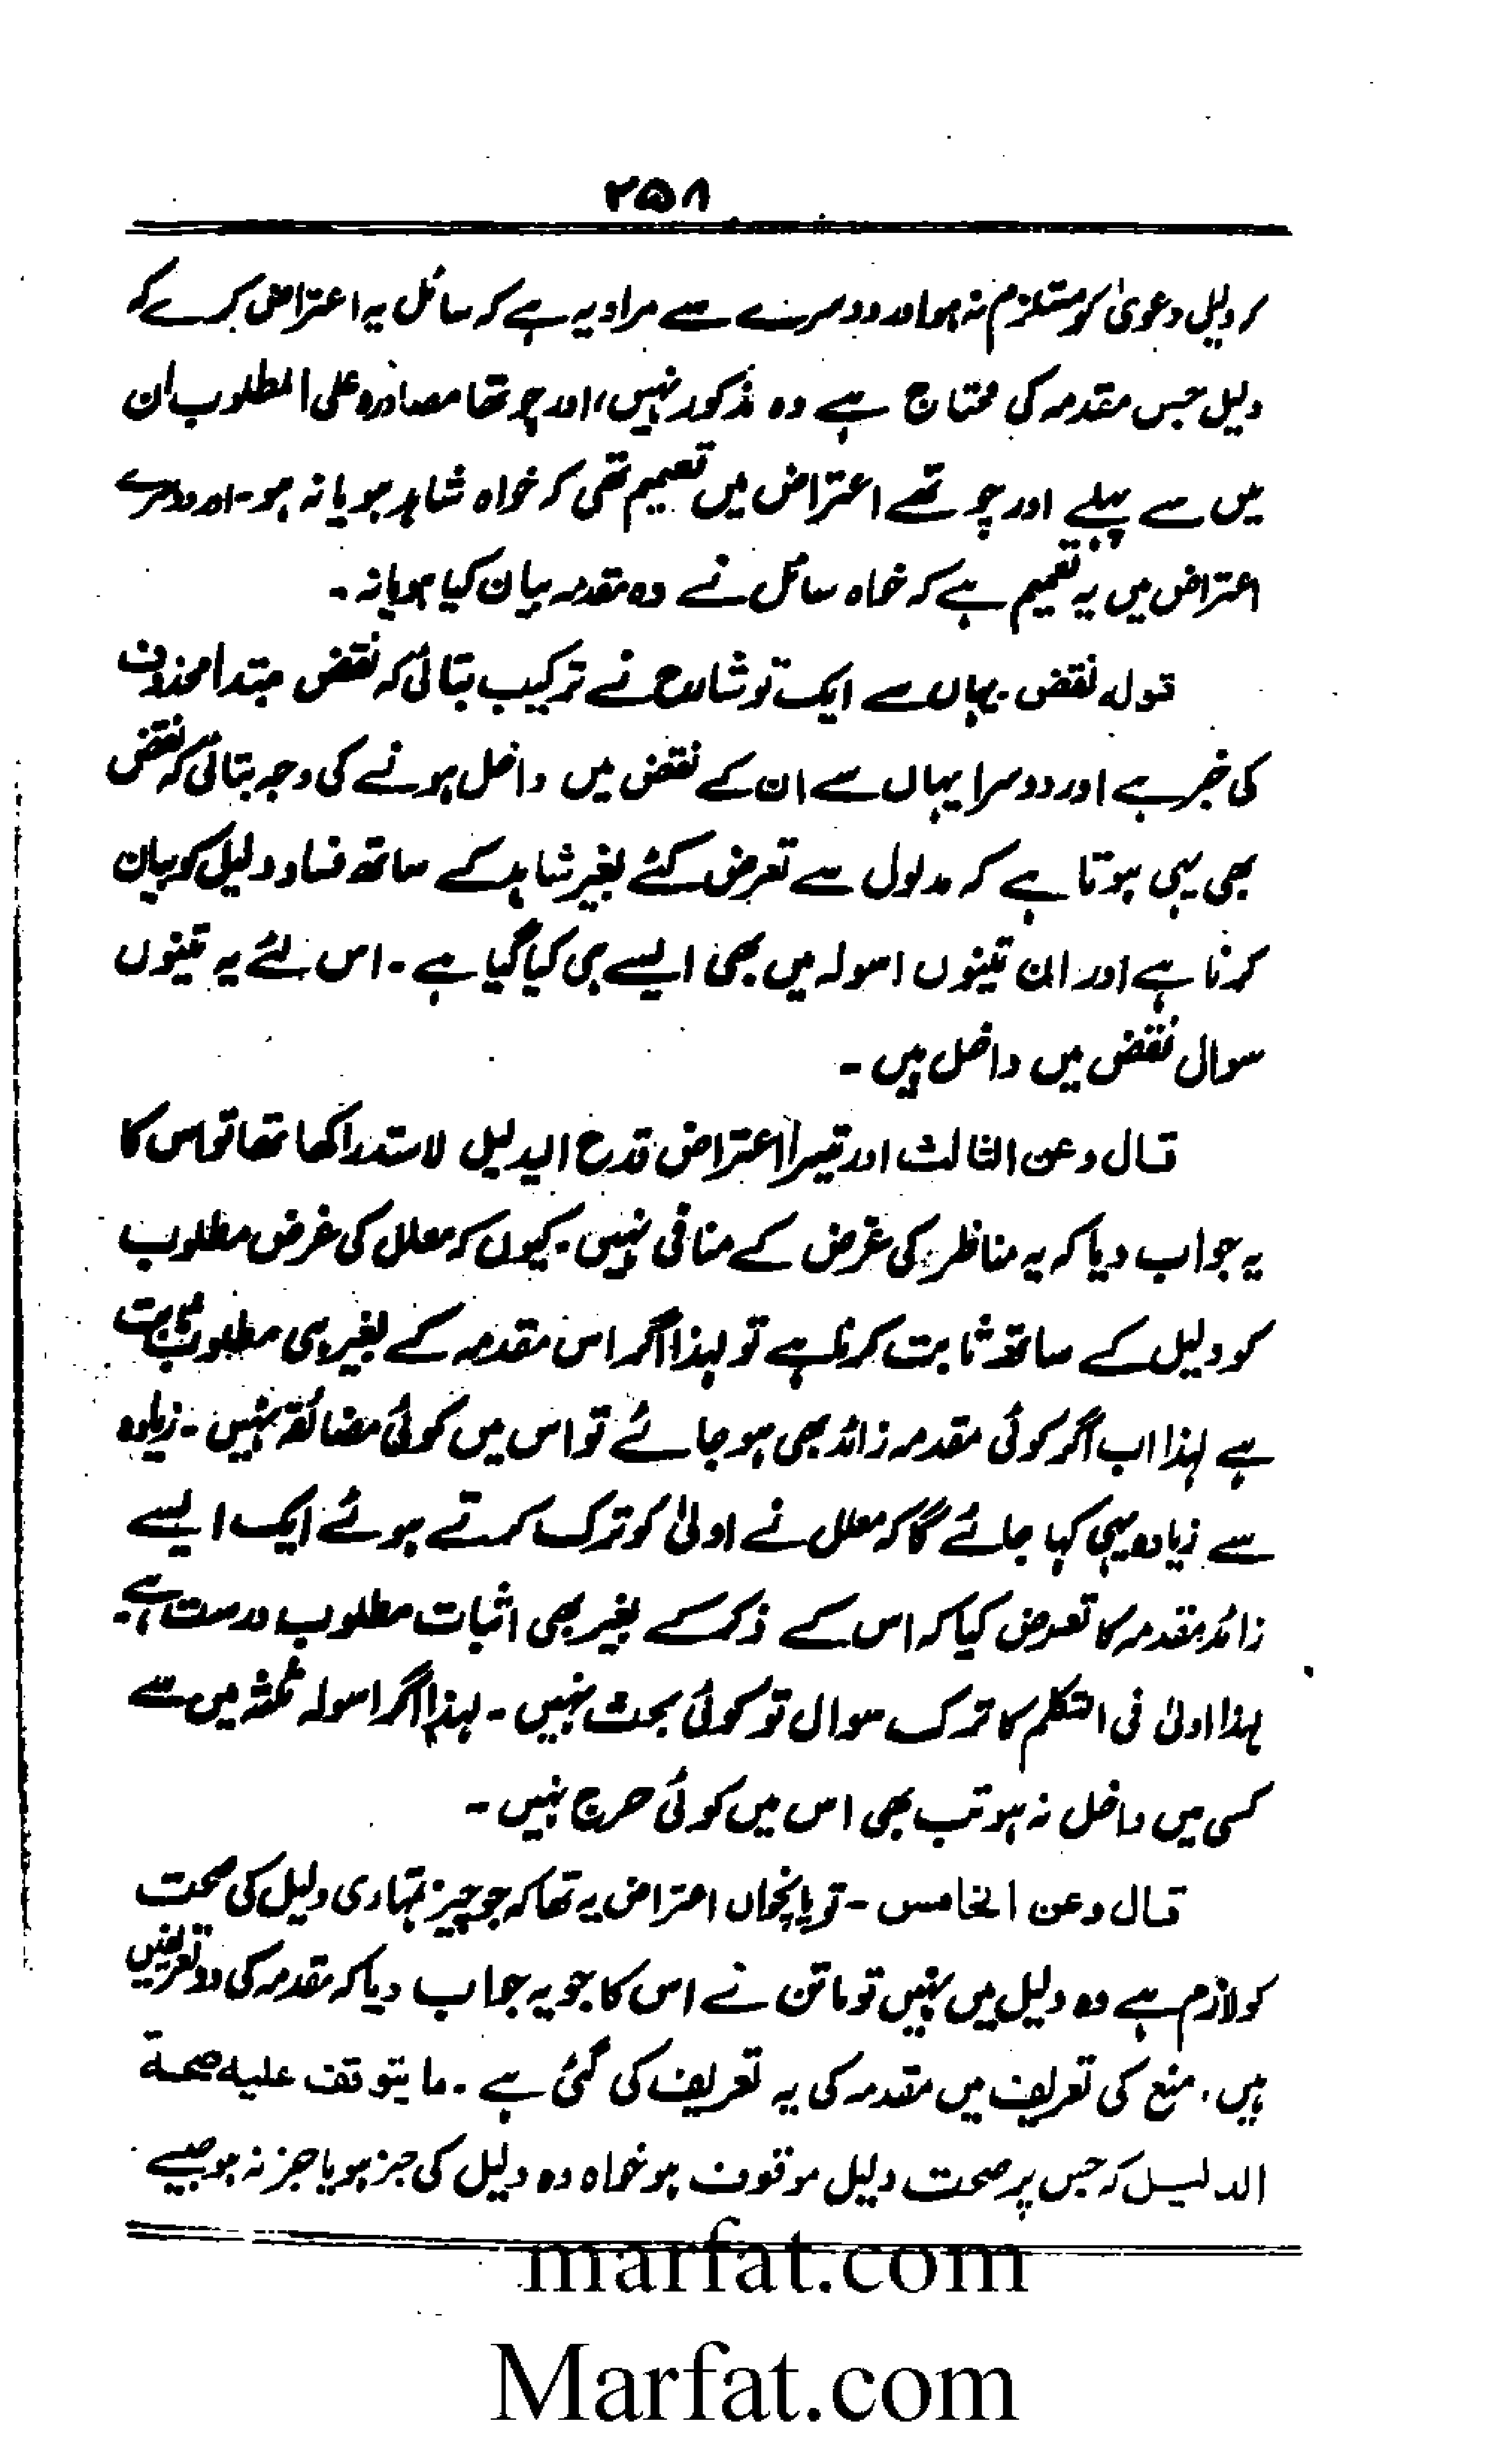 ۲۵۸
کہ دلیل دعویٰ کو مستلزم نہ ہو اور دوسرے سے مراد یہ ہے کہ سائل یہ اعتراض کرے کہ
دلیل جس مقدمہ کی محتاج ہے وہ مذکور نہیں، اور چوتھا مصادرہ علی المطلوب ان
میں سے پہلے اور چوتھے اعتراض میں تعمیم تھی کہ خواہ شاہد ہو یا نہ ہو۔ اور دوسرے
اعتراض میں یہ تعمیم ہے کہ خواہ سائل نے وہ مقدمہ بیان کیا ہو یا نہ۔
قولہ نقض۔ یہاں سے ایک تو شارح نے ترکیب بتائی کہ نقض مبتدا محذوف
کی خبر ہے اور دوسرا یہاں سے ان کے نقض میں داخل ہونے کی وجہ بتائی کہ نقض
بھی یہی ہوتا ہے کہ مدلول سے تعرض کئے بغیر شاہد کے ساتھ فساد دلیل کو بیان
کرنا ہے اور ان تینوں اسولہ میں بھی ایسے ہی کیا گیا ہے۔ اس لئے یہ تینوں
سوال نقض میں داخل ہیں۔
قال وعن الثالث اور تیسرا اعتراض قدح الدلیل لاستدراکھا تھا تو اس کا
یہ جواب دیا کہ یہ مناظر کی غرض کے منافی نہیں۔ کیوں کہ معلل کی غرض مطلوب
کو دلیل کے ساتھ ثابت کرنا ہے تو لہذا اگر اس مقدمہ کے بغیر ہی مطلوب ثابت
ہے لہذا اب اگر کوئی مقدمہ زائد بھی ہو جائے تو اس میں کوئی مضائقہ نہیں۔ زیادہ
سے زیادہ یہی کہا جائے گا کہ معلل نے اولیٰ کو ترک کرتے ہوئے ایک ایسے
زائد مقدمہ کا تعرض کیا کہ اس کے ذکر کے بغیر بھی اثبات مطلوب درست ہے۔
لہذا اولیٰ فی التکلم کا ترک سوال تو کوئی بحث نہیں۔ لہذا اگر اسولہ ثلثہ میں سے
کسی میں داخل نہ ہو تب بھی اس میں کوئی حرج نہیں۔
قال وعن الخامس۔ تو پانچواں اعتراض یہ تھا کہ جو چیز تمہاری دلیل کی صحت
کو لازم ہے وہ دلیل میں نہیں تو ماتن نے اس کا جو یہ جواب دیا کہ مقدمہ کی دو تعریفیں
ہیں، منع کی تعریف میں مقدمہ کی یہ تعریف کی گئی ہے۔ ما یتوقف علیہ صحۃ
الدلیل کہ جس پر صحت دلیل موقوف ہو خواہ وہ دلیل کی جز ہو یا جز نہ ہو جیسے
marfat.com
Marfat.com